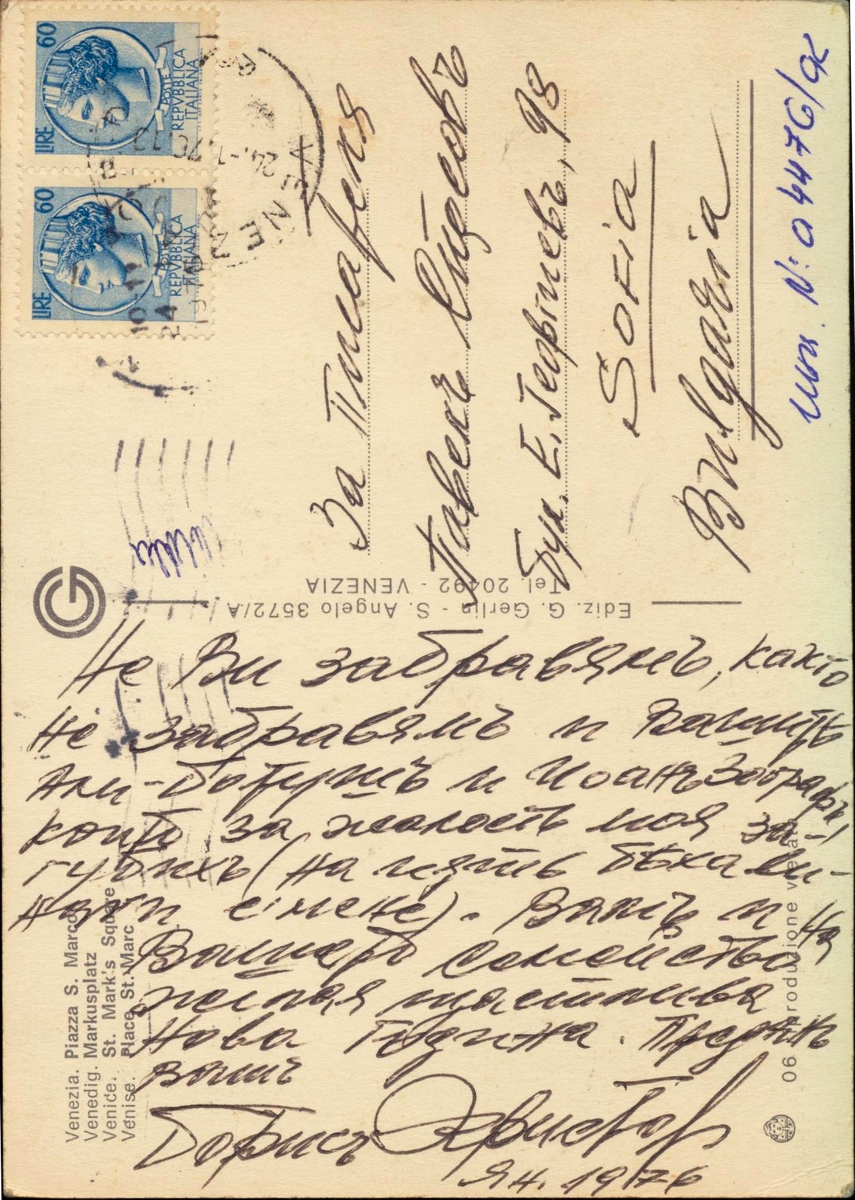 LIRE 60
POSTE
REPVBBLICA
ITALIANA
LIRE 60
POSTE
REPVBBLICA
ITALIANA
За Писателя
Павелъ Спасовъ
Бул. Е. Георгиевъ, 98
SOFIA
Bulgaria
инв. №: 04476/92
Ediz. G. Gerlin - S. Angelo 3572/A
Tel. 20492 - VENEZIA
Не Ви забравямъ, както
не забравямъ и Вашитѣ
Али-Ботушъ и Иоанъ Зографъ
които за жалость моя за-
губихъ (на пѫть бѣха ви-
наги с мене). Вамъ и на
Вашето семейство
желая щастлива
Нова Година. Преданъ
Вашъ
Борисъ Христов
Ян. 1976
Venezia. Piazza S. Marco
Venedig. Markusplatz
Venice. St. Mark's Square
Venise. Place St. Marc
06 riproduzione vietata